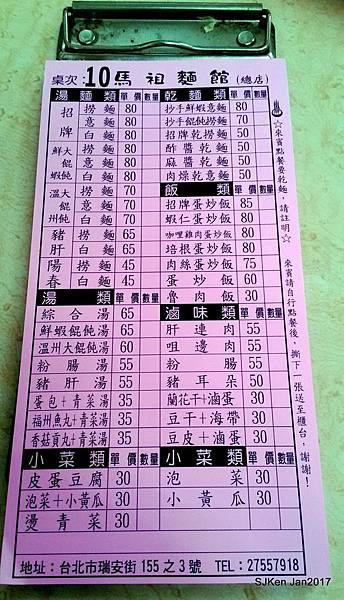 桌次：10 馬祖麵館(總店)
湯麵類 單價 數量
招牌 撈麵 80
意麵 80
白麵 80
鮮蝦大餛飩 撈麵 80
意麵 80
白麵 80
溫州大餛飩 撈麵 70
意麵 70
白麵 70
豬肝 撈麵 65
白麵 65
陽春 撈麵 45
白麵 45
湯類 單價 數量
綜合湯 65
鮮蝦餛飩湯 65
溫州大餛飩湯 60
粉腸湯 55
豬肝湯 55
蛋包+青菜湯 35
福州魚丸+青菜湯 35
香菇貢丸+青菜湯 35
小菜類 單價 數量
皮蛋豆腐 30
泡菜+小黃瓜 30
燙青菜 30
乾麵類 單價 數量
抄手鮮蝦意麵 80
抄手餛飩意麵 70
招牌乾撈麵 50
酢醬乾麵 50
麻醬乾麵 50
肉燥乾意麵 50
飯類 單價 數量
招牌蛋炒飯 85
蝦仁蛋炒飯 80
咖哩雞肉蛋炒飯 80
培根蛋炒飯 80
肉絲蛋炒飯 75
蛋炒飯 60
魯肉飯 30
滷味類 單價 數量
肝連肉 55
咀邊肉 55
粉腸 55
豬耳朵 50
蘭花干+滷蛋 30
豆干+海帶 30
豆皮+滷蛋 30
小菜類 單價 數量
泡菜 30
小黃瓜 30
☆來賓點餐要乾麵，請註明☆
來賓請自行點餐後，撕下一張送至櫃台，謝謝！
地址：台北市瑞安街155之3號 TEL：27557918
SJKen Jan2017